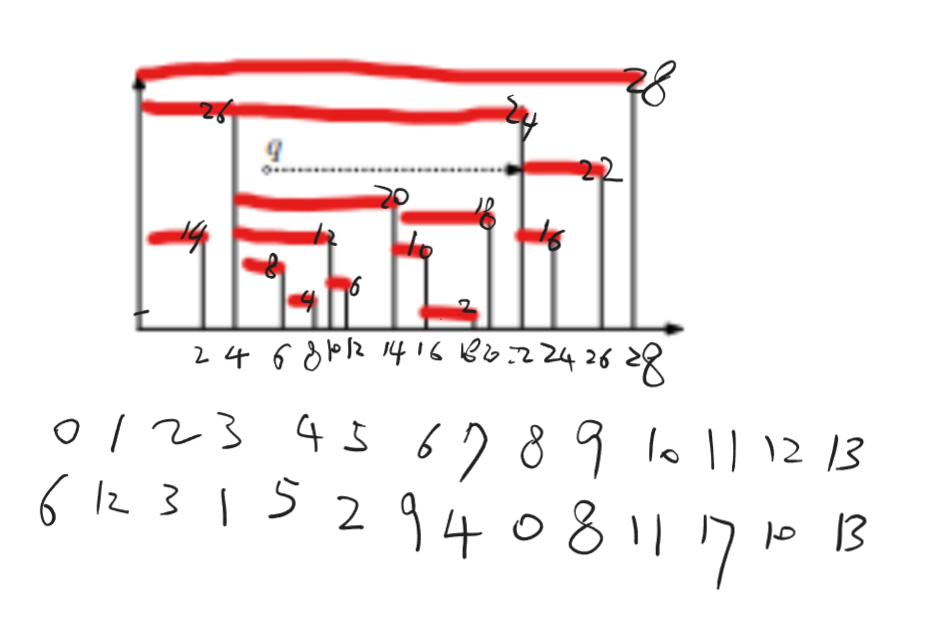 28
26 24
q
22
20
18
14 12 16
10
8
6
4
2
2 4 6 8 10 12 14 16 18 20 22 24 26 28
0 1 2 3 4 5 6 7 8 9 10 11 12 13
6 12 3 1 5 2 9 4 0 8 11 17 10 13